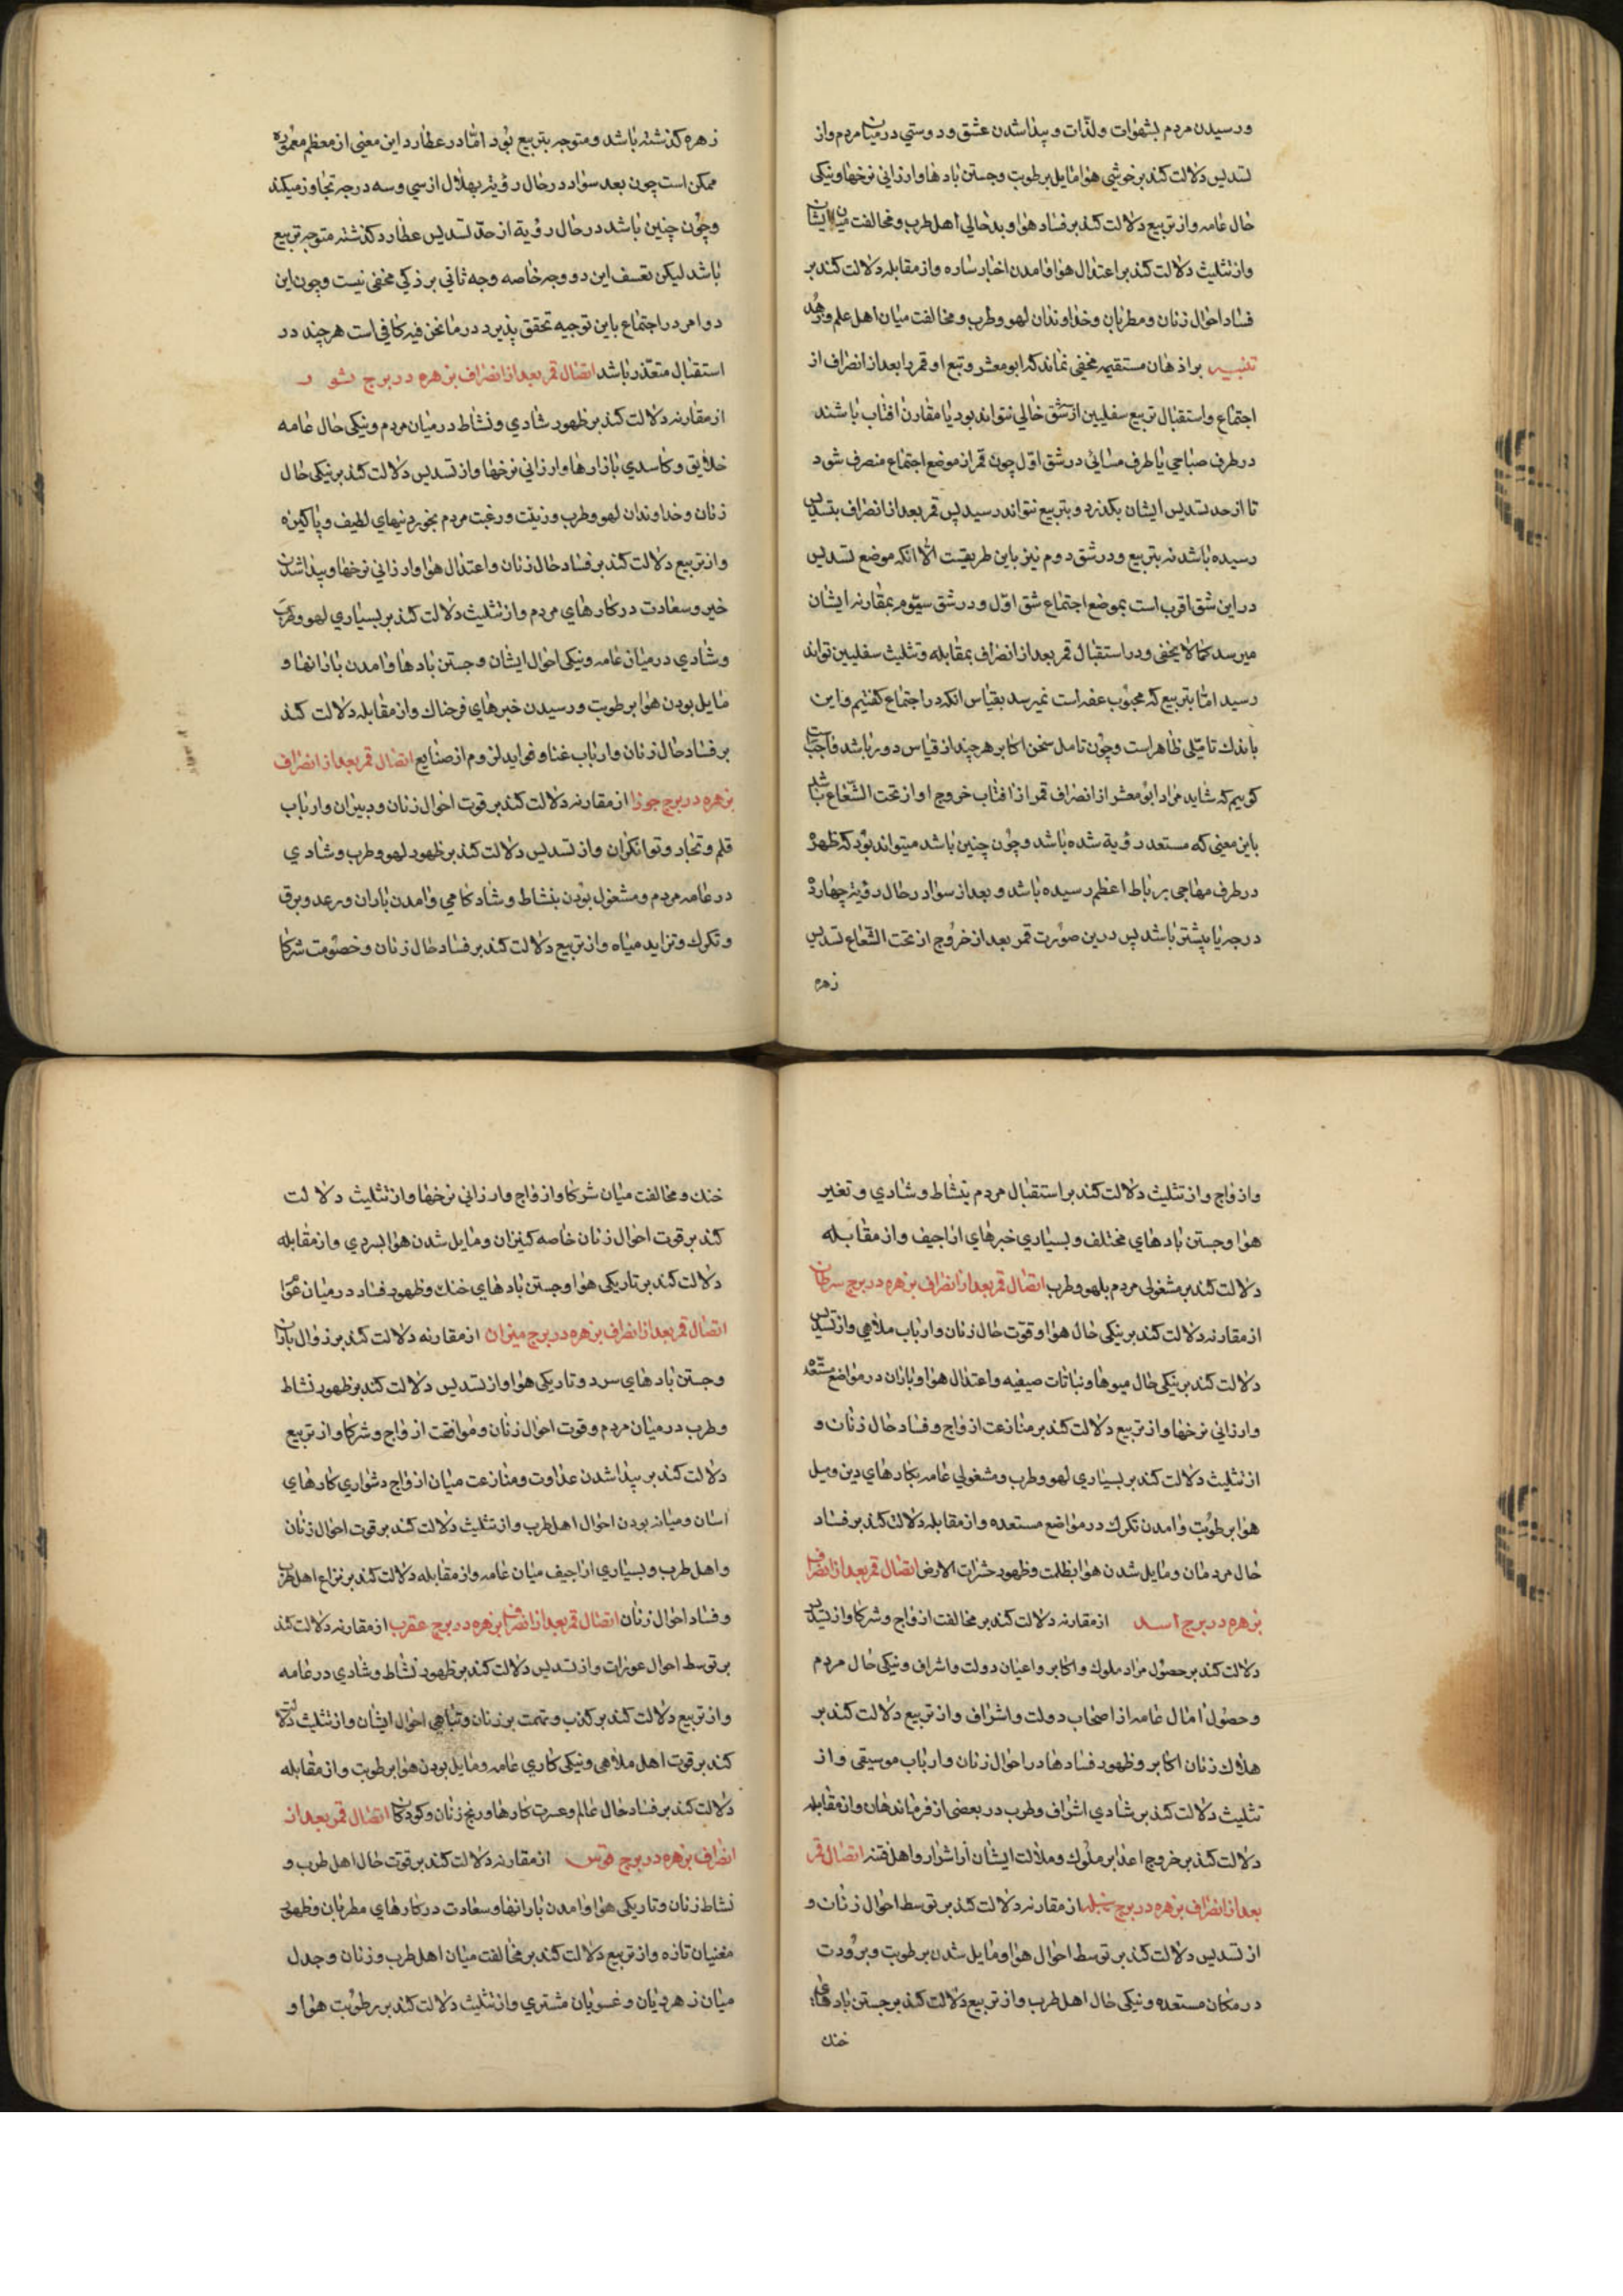 ورسیدن مردم بشهوات ولذّات و پیدا شدن عشق و دوستی در میان مردم واز
تسدیس دلالت کند بر خوشی هوا مایل برطوبت وجستن بادها وارزانی نرخها ونیکی
حال عامه واز تربیع دلالت کند بر فساد هوا و بدحالی اهل طرب ومخالفت میان ایشان
واز تثلیث دلالت کند بر اعتدال هوا وامدن اخبار ساره واز مقابله دلالت کند بر
فساد احوال زنان ومطربان وخداوندان لهو وطرب ومخالفت میان اهل علم وزهد
تنبیه بر اذهان مستقیمه مخفی نماند که ابو معشر وتبع او قمر را بعد از انصراف از
اجتماع واستقبال تربیع سفلیین از شق خالی نتواند بود یا مقارن افتاب باشند
در طرف صباحی یا طرف مسائی در شق اوّل چون قمر از موضع اجتماع منصرف شود
تا از حد تسدیس ایشان بکذرد و بتربیع نتواند رسید پس قمر بعد از انصراف بتسدیس
رسیده باشد نه بتربیع ودر شق دوم نیز باین طریقست الّا انکه موضع تسدیس
در این شق اقرب است بموضع اجتماع شق اوّل ودر شق سیّوم بمقارنه ایشان
میرسد کما لا یخفی ودر استقبال قمر بعد از انصراف بمقابله وتثلیث سفلیین تواند
رسید امّا بتربیع که محبوب عفه است نمیرسد بقیاس انکه در اجتماع کفتیم واین
باندك تامّلی ظاهر است وچون تامل سخن اکابر هرچند از قیاس دور باشد واجب است
کوییم که شاید مراد ابو معشر از انصراف قمر از افتاب خروج او از تحت الشّعاع باشد
باین معنی که مستعد رؤیة شده باشد وچون چنین باشد میتواند بود که زهره
در طرف مهاجی برباط اعظم رسیده باشد و بعد از سواد در حال رؤیة چهارده
درجه یا بیشتر باشد پس درین صورت قمر بعد از خروج از تحت الشّعاع تسدیس
زهره
زهره کذشته باشد ومتوجه بتربیع بود امّا در عطارد این معنی از معظم معموره
ممکن است چون بعد سواد در حال رؤیة بهلال از سی وسه درجه تجاوز میکند
وچون چنین باشد در حال رؤیة از حدّ تسدیس عطارد کذشته متوجه تربیع
باشد لیکن تعسف این دو وجه خاصه وجه ثانی بر ذکی مخفی نیست وچون این
دو امر در اجتماع باین توجیه تحقق پذیرد در ما نحن فیه کافی است هرچند در
استقبال متعذّر باشد اتصال قمر بعد از انصراف بزهره در برج ثور
از مقارنه دلالت کند بر ظهور شادی ونشاط در میان مردم ونیکی حال عامه
خلایق وکاسدی بازارها وارزانی نرخها واز تسدیس دلالت کند بر نیکی حال
زنان وخداوندان لهو وطرب وزینت ورغبت مردم بخوردنیهای لطیف وپاکیزه
واز تربیع دلالت کند بر فساد حال زنان واعتدال هوا وارزانی نرخها وپیدا شدن
خیر وسعادت در کارهای مردم واز تثلیث دلالت کند بر بسیاری لهو وطرب
وشادی در میان عامه ونیکی احوال ایشان وجستن بادها وامدن بارانها و
مایل بودن هوا برطوبت ورسیدن خبرهای فرحناك واز مقابله دلالت کند
بر فساد حال زنان وارباب غنا وفواید لزوم از صنایع اتصال قمر بعد از انصراف
بزهره در برج جوزا از مقارنه دلالت کند بر قوت احوال زنان ودبیران وارباب
قلم وتجار وتوانکران واز تسدیس دلالت کند بر ظهور لهو وطرب وشادی
در عامه مردم ومشغول بودن بنشاط وشادکامی وامدن باران ورعد وبرق
وتکرك وتزاید میاه واز تربیع دلالت کند بر فساد حال زنان وخصومت شرکا
وازواج واز تثلیث دلالت کند بر استقبال مردم بنشاط وشادی وتغیر
هوا وجستن بادهای مختلف وبسیاری خبرهای اراجیف واز مقابله
دلالت کند بر مشغولی مردم بلهو وطرب اتصال قمر بعد از انصراف بزهره در برج سرطان
از مقارنه دلالت کند بر نیکی حال هوا وقوّت حال زنان وارباب ملاهی واز تسدیس
دلالت کند بر نیکی حال میوها ونباتات صیفیه واعتدال هوا وباران در مواضع مستعده
وارزانی نرخها واز تربیع دلالت کند بر منازعت ازواج وفساد حال زنان و
از تثلیث دلالت کند بر بسیاری لهو وطرب ومشغولی عامه بکارهای دین ومیل
هوا برطوبت وامدن تکرك در مواضع مستعده واز مقابله دلالت کند بر فساد
حال مردمان ومایل شدن هوا بظلمت وظهور حشرات الارض اتصال قمر بعد از انصراف
بزهره در برج اسد از مقارنه دلالت کند بر مخالفت ازواج وشرکا واز تسدیس
دلالت کند بر حصول مراد ملوك واکابر واعیان دولت واشراف ونیکی حال مردم
وحصول امال عامه از اصحاب دولت واشراف واز تربیع دلالت کند بر
هلاك زنان اکابر وظهور فسادها در احوال زنان وارباب موسیقی واز
تثلیث دلالت کند بر شادی اشراف وطرب در بعضی از فرماندهان واز مقابله
دلالت کند بر خروج اعدا بر ملوك وملالت ایشان از اشرار واهل فتنه اتصال قمر
بعد از انصراف بزهره در برج سنبله از مقارنه دلالت کند بر توسط احوال زنان و
از تسدیس دلالت کند بر توسط احوال هوا ومایل شدن برطوبت وبرودت
در مکان مستعده ونیکی حال اهل طرب واز تربیع دلالت کند بر جستن بادهای
خنك
خنك ومخالفت میان شرکا وازواج وارزانی نرخها واز تثلیث دلالت
کند بر قوت احوال زنان خاصه کنیزان ومایل شدن هوا بسردی واز مقابله
دلالت کند بر تاریکی هوا وجستن بادهای خنك وظهور فساد در میان عوام
اتصال قمر بعد از انصراف بزهره در برج میزان از مقارنه دلالت کند بر نزول باران
وجستن بادهای سرد وتاریکی هوا واز تسدیس دلالت کند بر ظهور نشاط
وطرب در میان مردم وقوت احوال زنان وموافقت ازواج وشرکا واز تربیع
دلالت کند بر پیدا شدن عداوت ومنازعت میان ازواج دشواری کارهای
اسان ومیانه بودن احوال اهل طرب واز تثلیث دلالت کند بر قوت احوال زنان
واهل طرب وبسیاری اراجیف میان عامه واز مقابله دلالت کند بر نزاع اهل طرب
وفساد احوال زنان اتصال قمر بعد از انصراف بزهره در برج عقرب از مقارنه دلالت کند
بر توسط احوال عورات واز تسدیس دلالت کند بر ظهور نشاط وشادی در عامه
واز تربیع دلالت کند بر کذب وتهمت بر زنان وتباهی احوال ایشان واز تثلیث دلالت
کند بر قوت اهل ملاهی ونیکی کاری عامه ومایل بودن هوا برطوبت واز مقابله
دلالت کند بر فساد حال عالم وعسرت کارها ورنج زنان وکودکان اتصال قمر بعد از
انصراف بزهره در برج قوس از مقارنه دلالت کند بر قوّت حال اهل طرب و
نشاط زنان وتاریکی هوا وامدن بارانها وسعادت در کارهای مطربان وظهور
مغنیان تازه واز تربیع دلالت کند بر مخالفت میان اهل طرب وزنان وجدل
میان زهرویان و مشتری واز تثلیث دلالت کند بر رطوبت هوا و